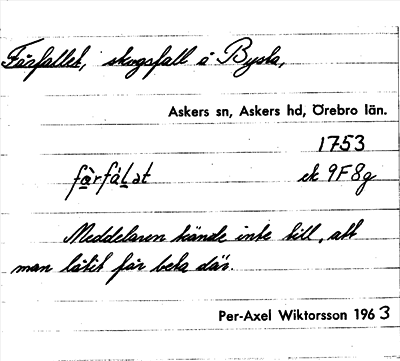 Fårfallet, skogsfall å Bysta,
Askers sn, Askers hd, Örebro län.
1753
få̀rfáḷət ek 9F8g
Meddelaren kände inte till, att
man låtit får beta där.
Per-Axel Wiktorsson 1963